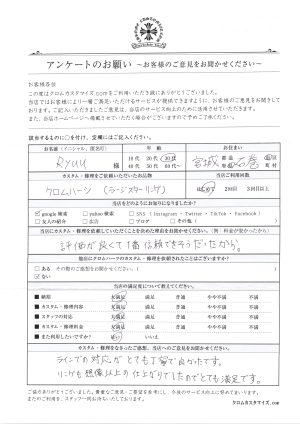 アンケートのお願い ～お客様のご意見をお聞かせください～
お客様各位
この度はクロムカスタマイズ.comをご利用いただき誠にありがとうございました。
当店ではお客様により一層ご満足いただけるサービスが提供できますように、お客様のご意見をお聞きして
おります。ご記入いただきましたご意見は、当店のサービス向上のために活用させていただきます。
また、当店ホームページへ掲載させていただく場合がございますので予めご了承ください。
該当するものに○を付け、空欄にはご記入ください。
お名前（イニシャル、匿名可） 年 齢 お住まい
Ryuu 様
10代 20代 30代
40代 50代 60代
宮城 石巻
カスタム・修理をご依頼いただいたお品物 当店ご利用回数
クロムハーツ（ラージスターリング） 初めて 2回目 3回目以上
当店をどのようにお知りになりましたか？
google 検索 yahoo 検索 SNS（Instagram・Twitter・TikTok・Facebook）
友人の紹介 広告 ブログ その他（ ）
当店にカスタム・修理を依頼していただくことを決めた理由をお聞かせください。（例：料金が安かったから）
評価が良くて1番信頼できそうだったから。
他店にクロムハーツのカスタム・修理を依頼されたことはございますか？
ある その際のご感想をお聞かせください（ ）
ない
当店の満足度について教えてください。
■ 納期 大満足 満足 普通 やや不満 不満
■ カスタム・修理内容 大満足 満足 普通 やや不満 不満
■ スタッフの対応 大満足 満足 普通 やや不満 不満
■ カスタム・修理料金 大満足 満足 普通 やや不満 不満
■ また利用したいですか？ はい いいえ
カスタム・修理をなさったご感想、当店へのご意見をお聞かせください。
ラインでの対応がとても丁寧で良かったです。
リングも想像以上の仕上がりでしたのでとても満足です。
ご協力ありがとうございました。貴重なご意見・ご要望を参考にし、今後のサービス向上に努めてまいります。
またのご利用を、スタッフ一同お待ちいたしております。
クロムカスタマイズ.com